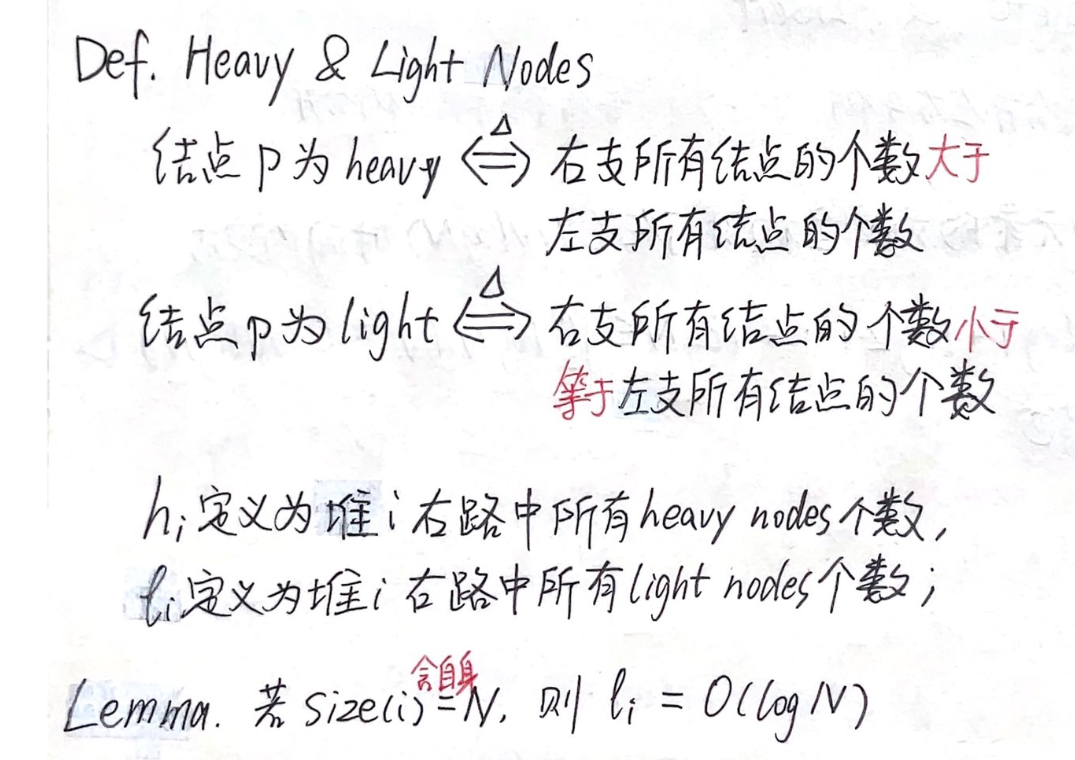 Def. Heavy & Light Nodes
结点 p 为 heavy <=> 右支所有结点的个数大于
△
左支所有结点的个数
结点 p 为 light <=> 右支所有结点的个数小于
△
等于左支所有结点的个数
hi 定义为堆 i 右路中所有 heavy nodes 个数,
li 定义为堆 i 右路中所有 light nodes 个数;
含自身
Lemma. 若 size(i) = N, 则 li = O(log N)